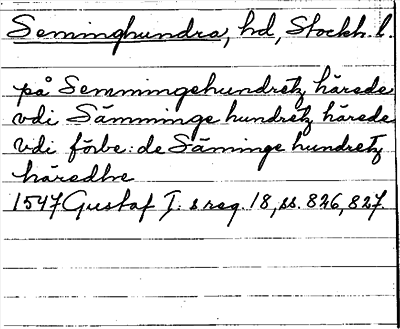 Seminghundra, hd, Stockh. l.
på Semmingehundretz härede
vdi Sämminge hundretz härede
vdi förbe:de Säminge hundretz
häredhe
1547 Gustaf I:s reg. 18, ss. 826, 827.